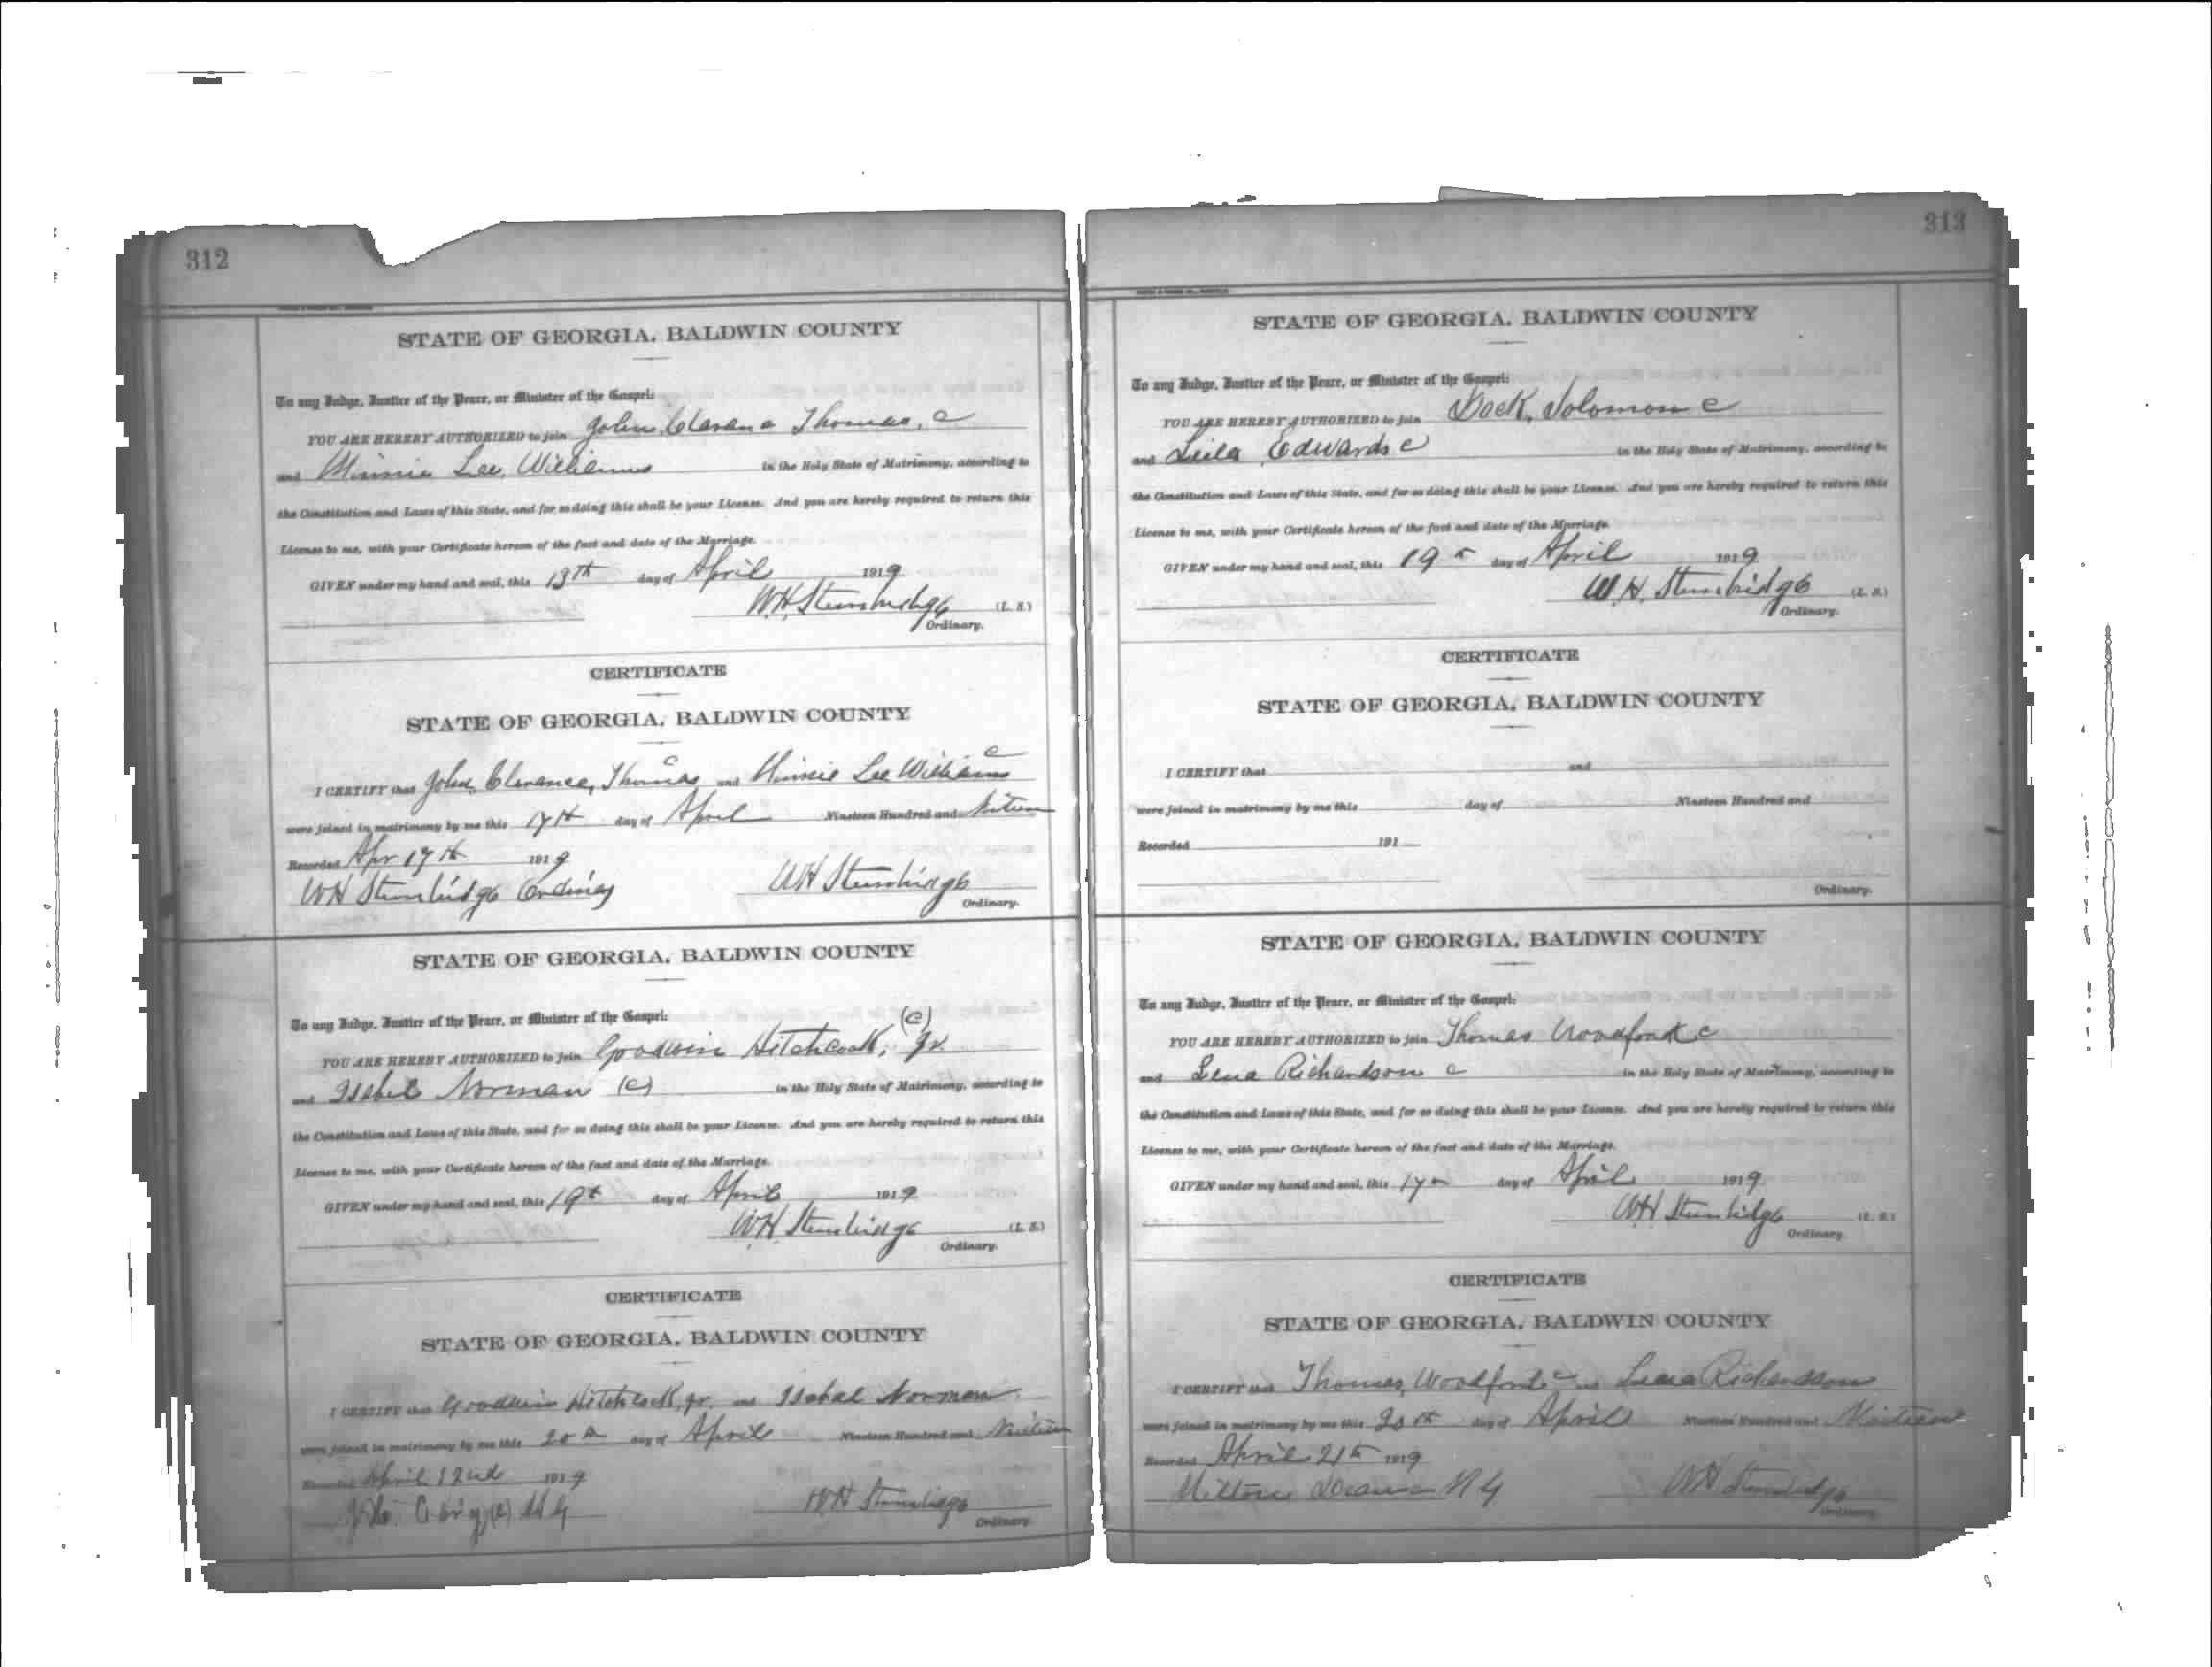 312
STATE OF GEORGIA, BALDWIN COUNTY
To any Judge, Justice of the Peace, or Minister of the Gospel:
YOU ARE HEREBY AUTHORIZED to join John, Clarance Thomas, c
and Minnie Lee, Williams in the Holy State of Matrimony, according to
the Constitution and Laws of this State, and for so doing this shall be your License. And you are hereby required to return this
License to me, with your Certificate hereon of the fact and date of the Marriage.
GIVEN under my hand and seal, this 13th day of April 1919
W.H. Stembridge (L. S.)
Ordinary.
CERTIFICATE
STATE OF GEORGIA, BALDWIN COUNTY
I CERTIFY that John, Clarance, Thomas c and Minnie Lee Williams c
were joined in matrimony by me this 17th day of April Nineteen Hundred and Ninteen
Recorded Apr 17th 1919
WH Stembridge Ordinary WH Stembridge
Ordinary.
STATE OF GEORGIA, BALDWIN COUNTY
To any Judge, Justice of the Peace, or Minister of the Gospel:
YOU ARE HEREBY AUTHORIZED to join Goodwin Hitchcock, Jr. (c)
and Isabel Norman (c) in the Holy State of Matrimony, according to
the Constitution and Laws of this State, and for so doing this shall be your License. And you are hereby required to return this
License to me, with your Certificate hereon of the fact and date of the Marriage.
GIVEN under my hand and seal, this 19th day of April 1919
W.H. Stembridge (L. S.)
Ordinary.
CERTIFICATE
STATE OF GEORGIA, BALDWIN COUNTY
I CERTIFY that Goodwin Hitchcock, jr. and Isabal Norman
were joined in matrimony by me this 20th day of April Nineteen Hundred and Ninteen
Recorded April 22nd 1919
(c) M G W.H Stembridge
Ordinary
313
STATE OF GEORGIA, BALDWIN COUNTY
To any Judge, Justice of the Peace, or Minister of the Gospel:
YOU ARE HEREBY AUTHORIZED to join Dock, Solomon c
and Leila Edwards c in the Holy State of Matrimony, according to
the Constitution and Laws of this State, and for so doing this shall be your License. And you are hereby required to return this
License to me, with your Certificate hereon of the fact and date of the Marriage.
GIVEN under my hand and seal, this 19th day of April 1919
W.H. Stembridge (L. S.)
Ordinary.
CERTIFICATE
STATE OF GEORGIA, BALDWIN COUNTY
I CERTIFY that and
were joined in matrimony by me this day of Nineteen Hundred and
Recorded 191
Ordinary.
STATE OF GEORGIA, BALDWIN COUNTY
To any Judge, Justice of the Peace, or Minister of the Gospel:
YOU ARE HEREBY AUTHORIZED to join Thomas Woodford c
and Lena Richardson c in the Holy State of Matrimony, according to
the Constitution and Laws of this State, and for so doing this shall be your License. And you are hereby required to return this
License to me, with your Certificate hereon of the fact and date of the Marriage.
GIVEN under my hand and seal, this 17th day of April 1919
WH Stembridge (L. S.)
Ordinary
CERTIFICATE
STATE OF GEORGIA, BALDWIN COUNTY
I CERTIFY that Thomas, Woodford c and Lena Richardson
were joined in matrimony by me this 20th day of April Nineteen Hundred and Ninteen
Recorded April 21th 1919
Milton WH Stembridge
Ordinary